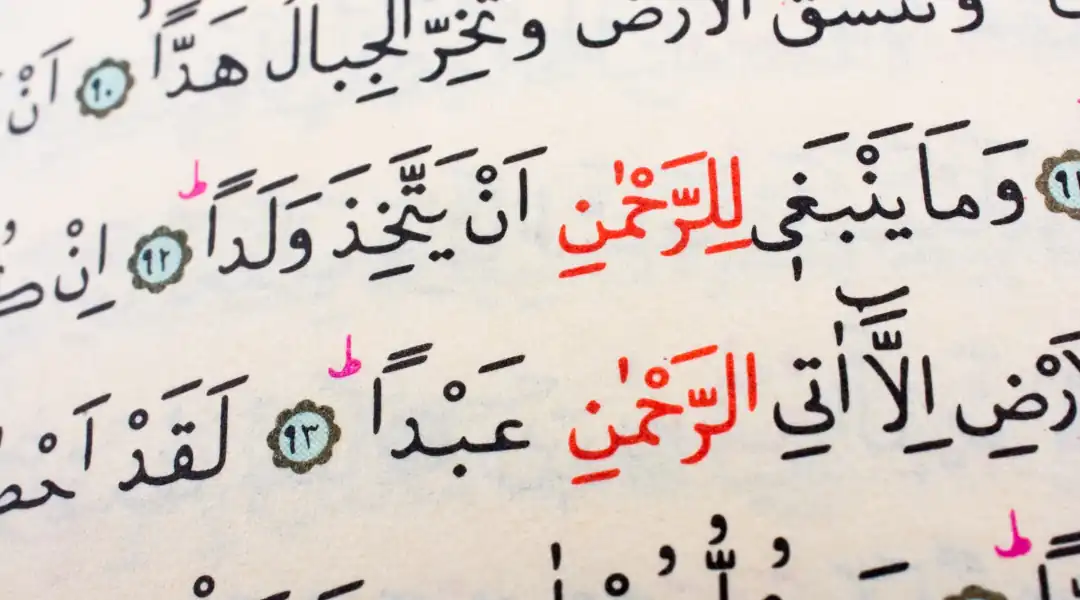 وَتَنْشَقُّ الْاَرْضُ وَتَخِرُّ الْجِبَالُ هَدًّا ۙ ﴿٩٠﴾ اَنْ
وَمَا يَنْبَغٖي لِلرَّحْمٰنِ اَنْ يَتَّخِذَ وَلَدًا ؕ ﴿٩٢﴾ اِنْ
اِلَّٓا اٰتِي الرَّحْمٰنِ عَبْدًا ؕ ﴿٩٣﴾ لَقَدْ